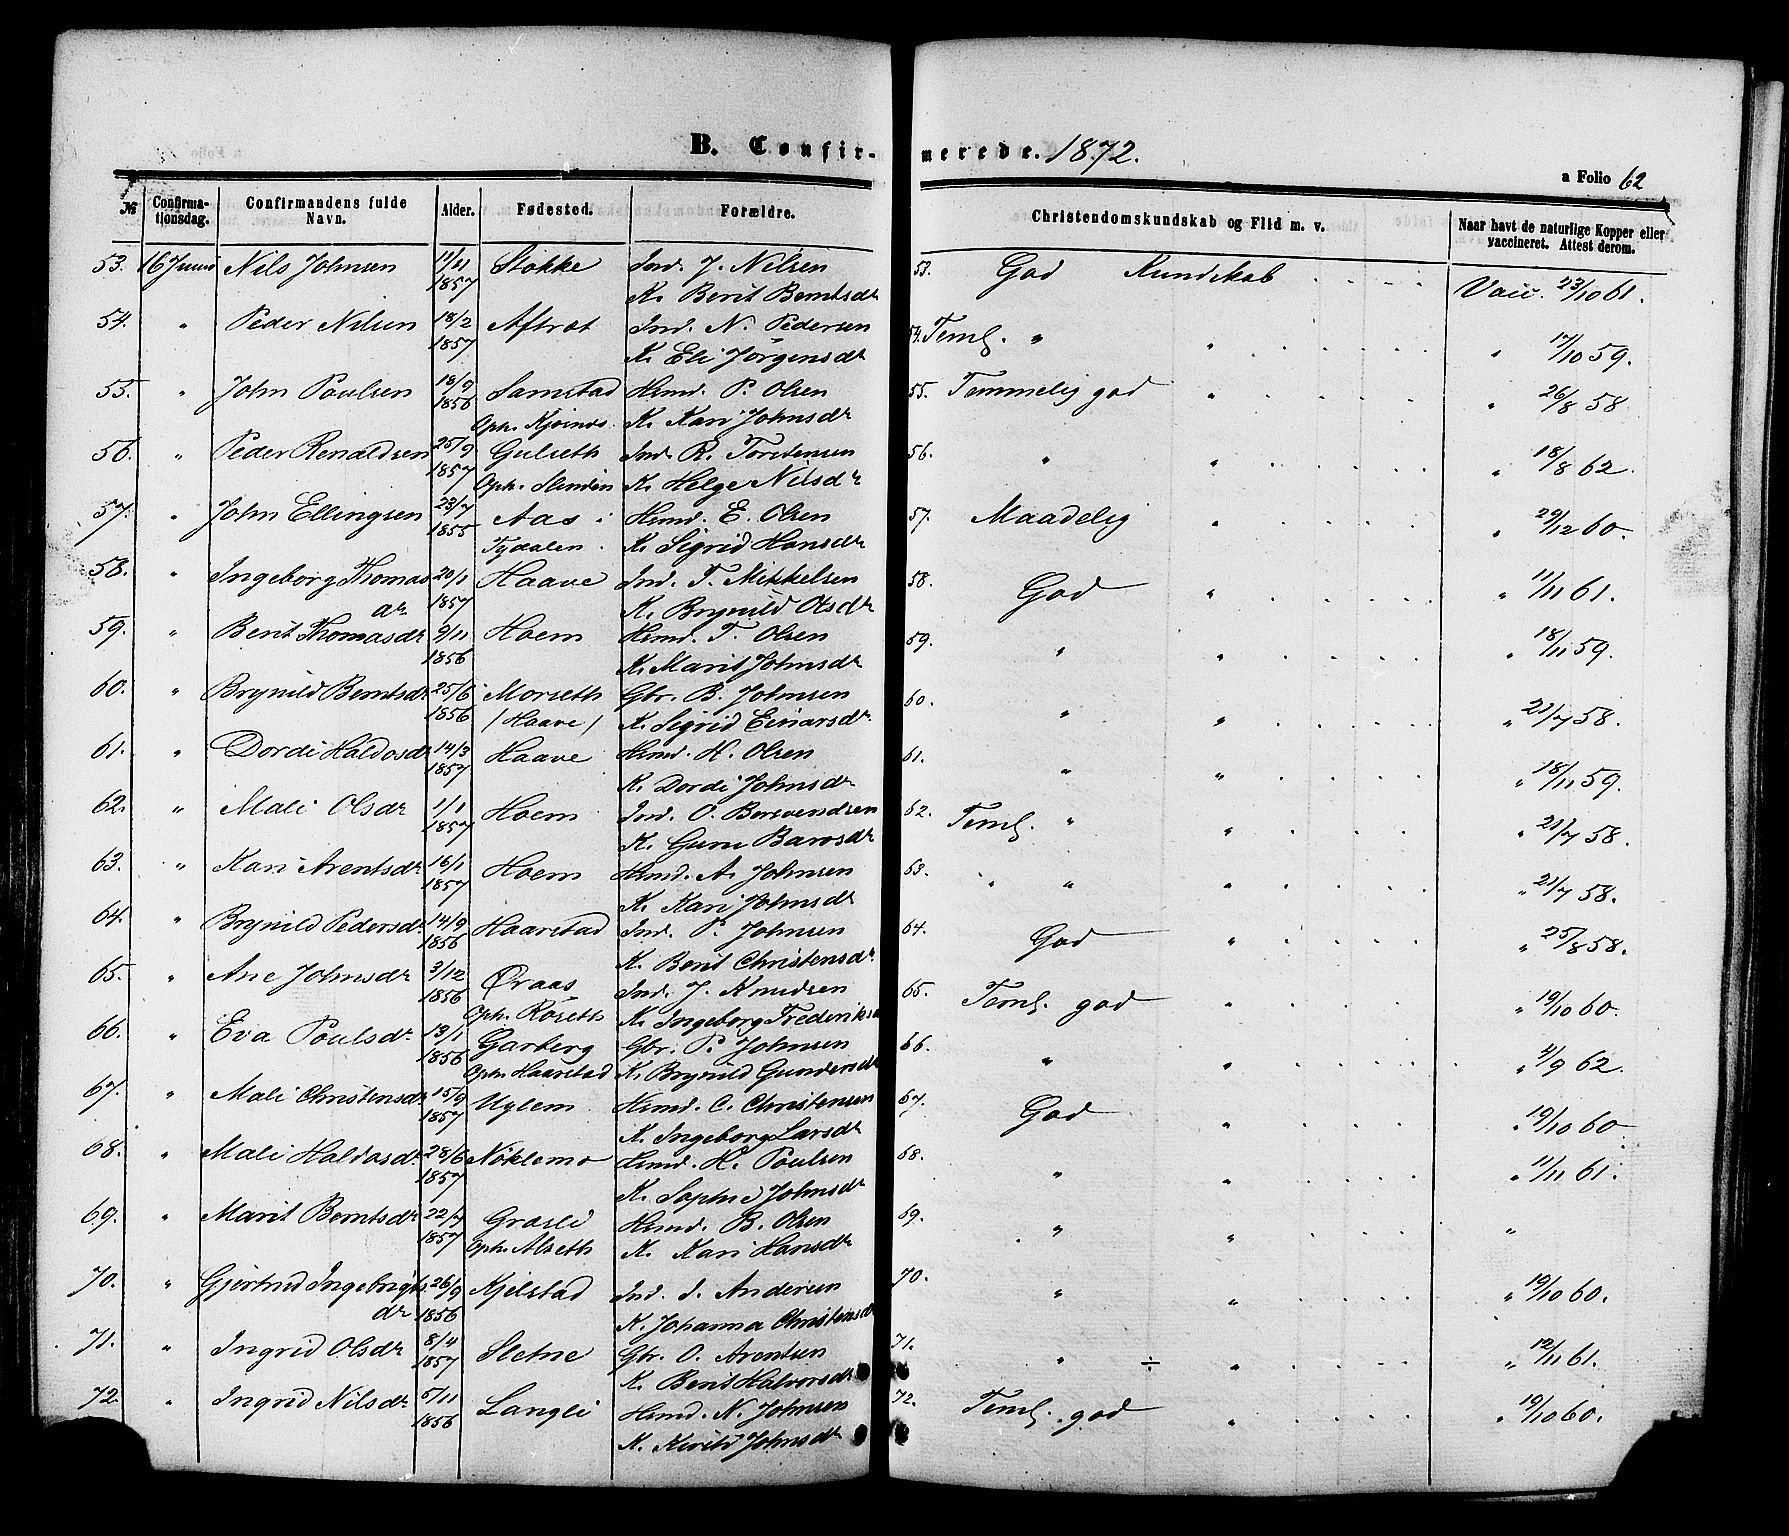 B. Confirmerede. 1872.
a Folio 62
№ Confirmationsdag. Confirmandens fulde Navn. Alder. Fødested. Forældre. Christendomskundskab og Flid m. v. Naar havt de naturlige Kopper eller vaccineret. Attest derom.
53. 16 Juni Nils Johnsen 11/11 1857 Stokke Ind. J. Nilsen 53. God Kundskab Vacc. 23/10 61.
K. Berit Berntsdr
54. " Peder Nilsen 18/2 1857 Aftrøt Ind. N. Pedersen 54. Teml. " " " 17/10 59.
K. Eli Jörgensdr
55. " John Poulsen 18/9 1856 Samstad Hmd. P. Olsen 55. Temmelig god " " 26/8 58
Oph. K. Kari Johnsdr
56. " Peder Renaldsen 25/9 1857 Gulseth Ind. R. Torstensen 56. " " " 18/8 62.
Oph. K. Helge Nilsdr
57. " John Ellingsen 23/7 1855 Aas i Hmd. E. Olsen 57. Maadelig " " 29/12 60.
Tydalen. K. Sigrid Hansdr
58. " Ingeborg Thomas 20/1 1857 Haave Ind. T. Mikkelsen 58. God " " 11/11 61.
dr K. Brynild Olsdr
59. " Berit Thomasdr 9/11 1856 Hoem Hmd. T. Olsen 59. " " " 18/11 59.
K. Marit Johnsdr
60. " Brynild Berntsdr 25/6 1856 Morseth Gbr. B. Johnsen 60. " " " 21/7 58.
/Haave/ K. Sigrid Einarsdr
61. " Dordi Haldosdr 14/3 1857 Haave Hmd. H. Olsen 61. " " " 18/11 59.
K. Dordi Johnsdr
62. " Mali Olsdr 1/1 1857 Hoem Ind. O. Bersvendsen 62. Teml. " " " 21/7 58.
K. Guru Barosdr
63. " Kari Arentsdr 16/1 1857 Hoem Hmd. A. Johnsen 63. " " " " 21/7 58.
K. Kari Johnsdr
64. " Brynild Pedersdr 14/9 1856 Haarstad Ind. P. Johnsen 64. God " " 25/8 58.
K. Berit Christensdr
65. " Ane Johnsdr 3/12 1856 Øraas Ind. J. Knudsen 65. Teml. god " " 19/10 60.
Oph. Röseth K. Ingeborg Frederiks
66. " Eva Poulsdr 13/1 1856 Garberg Gbr. P. Johnsen 66. " " " 4/9 62.
Oph. Haarstad K. Brynild Gundersdr
67. " Mali Christensdr 15/9 1857 Uglem Hmd. C. Christensen 67. God " " 19/10 60
K. Ingeborg Larsdr
68. " Mali Haldosdr 28/6 1857 Nöklemo Hmd. H. Poulsen 68. " " " 11/11 61.
K. Sophie Johnsdr
69. " Marit Berntsdr 22/7 1857 Græsli Hmd. B. Olsen 69. " " "
Oph. Alseth K. Kari Hansdr
70. " Gjertrud Ingebrigts 26/9 1856 Kjelstad Ind. I. Andersen 70. " " " 19/10 60.
dr K. Johanna Christensd
71. " Ingrid Olsdr 8/4 1857 Sletne Gbr. O. Arentsen 71. " ÷ " " 12/11 61.
K. Berit Halvorsdr
72. " Ingrid Nilsdr 5/11 1856 Langli Hmd. N. Johnsen 72. Teml. god " " 19/10 60.
K. Johnsdr